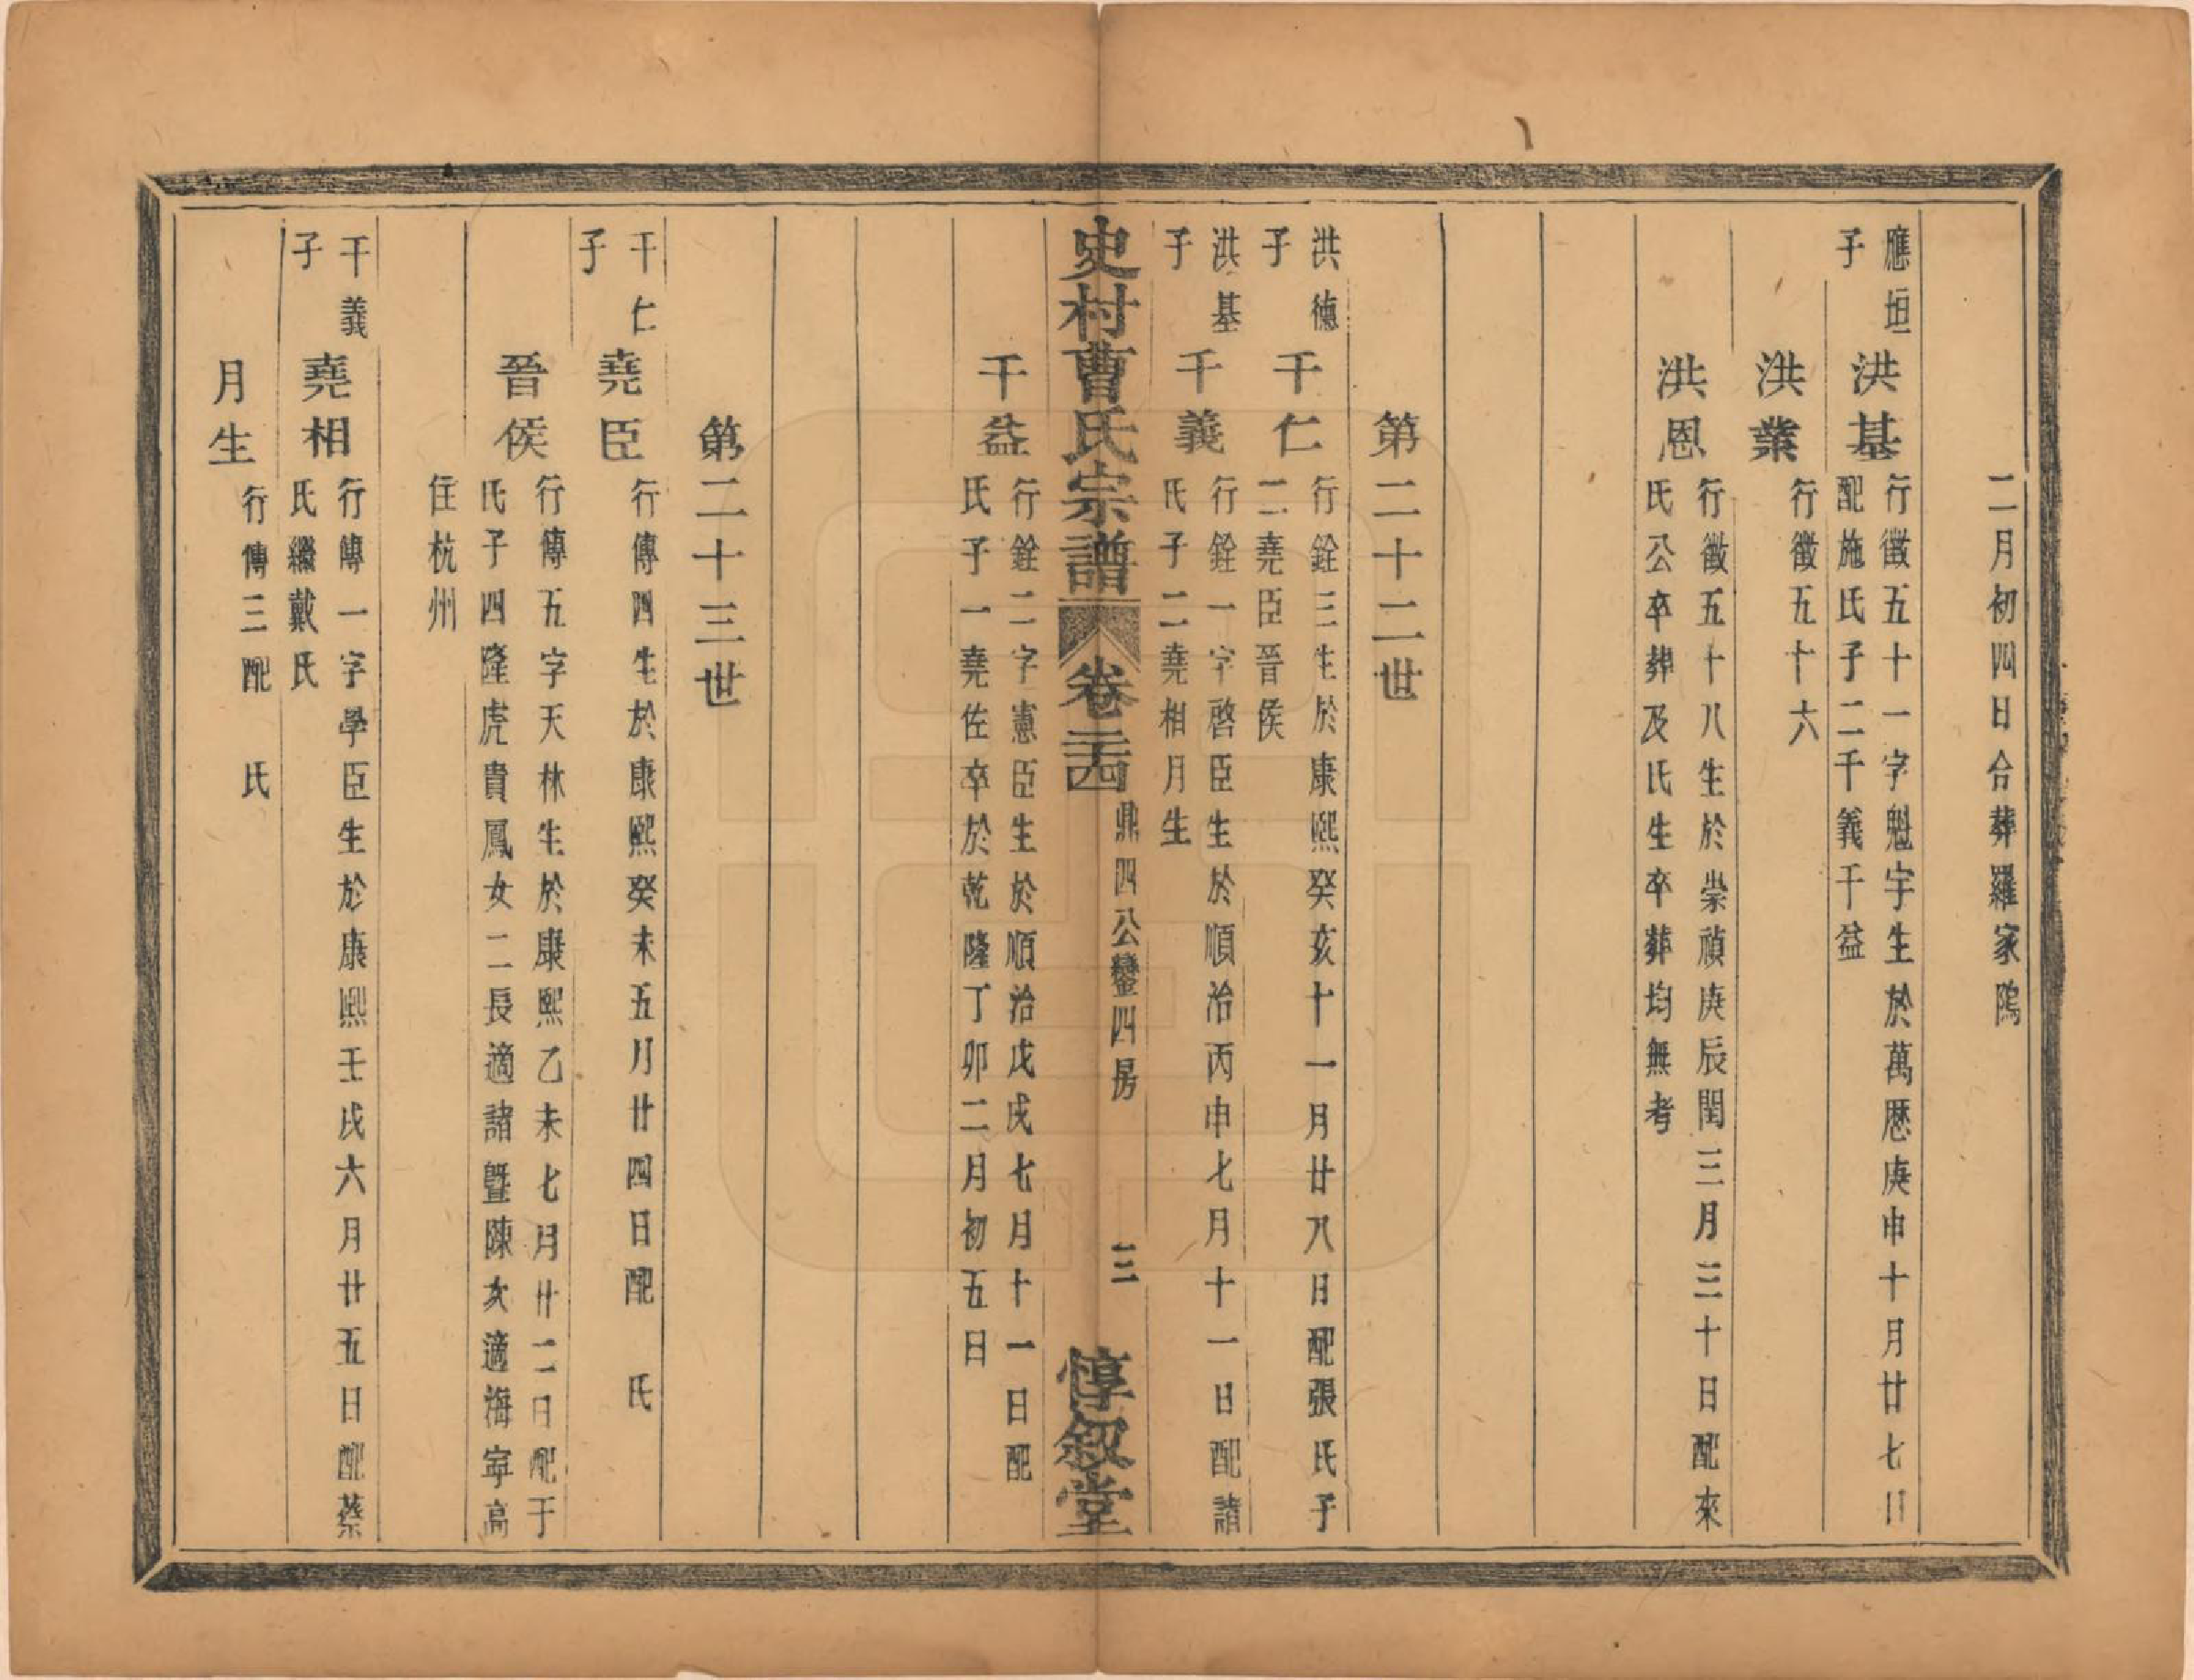 二月初四日合葬羅家隖
應垣
子
洪基
行徵五十一字魁宇生於萬歷庚申十月廿七日
配施氏子二千義千益
洪業
行徵五十六
洪恩
行徵五十八生於崇禎庚辰閏三月三十日配來
氏公卒葬及氏生卒葬均無考
第二十二世
洪德
子
千仁
行銓三生於康熙癸亥十一月廿八日配張氏子
二堯臣晉侯
洪基
子
千義
行銓一字啓臣生於順治丙申七月十一日配諸
氏子二堯相月生
史村曹氏宗譜
卷二十四
鼎四公鑾四房
三
惇敘堂
千益
行銓二字憲臣生於順治戊戌七月十一日配
氏子一堯佐卒於乾隆丁卯二月初五日
第二十三世
千仁
子
堯臣
行傳四生於康熙癸未五月廿四日配　氏
晉侯
行傳五字天林生於康熙乙未七月廿二日配于
氏子四隆虎貴鳳女二長適諸暨陳次適海寧高
住杭州
千義
子
堯相
行傳一字學臣生於康熙壬戌六月廿五日配蔡
氏繼戴氏
月生
行傳三配　氏